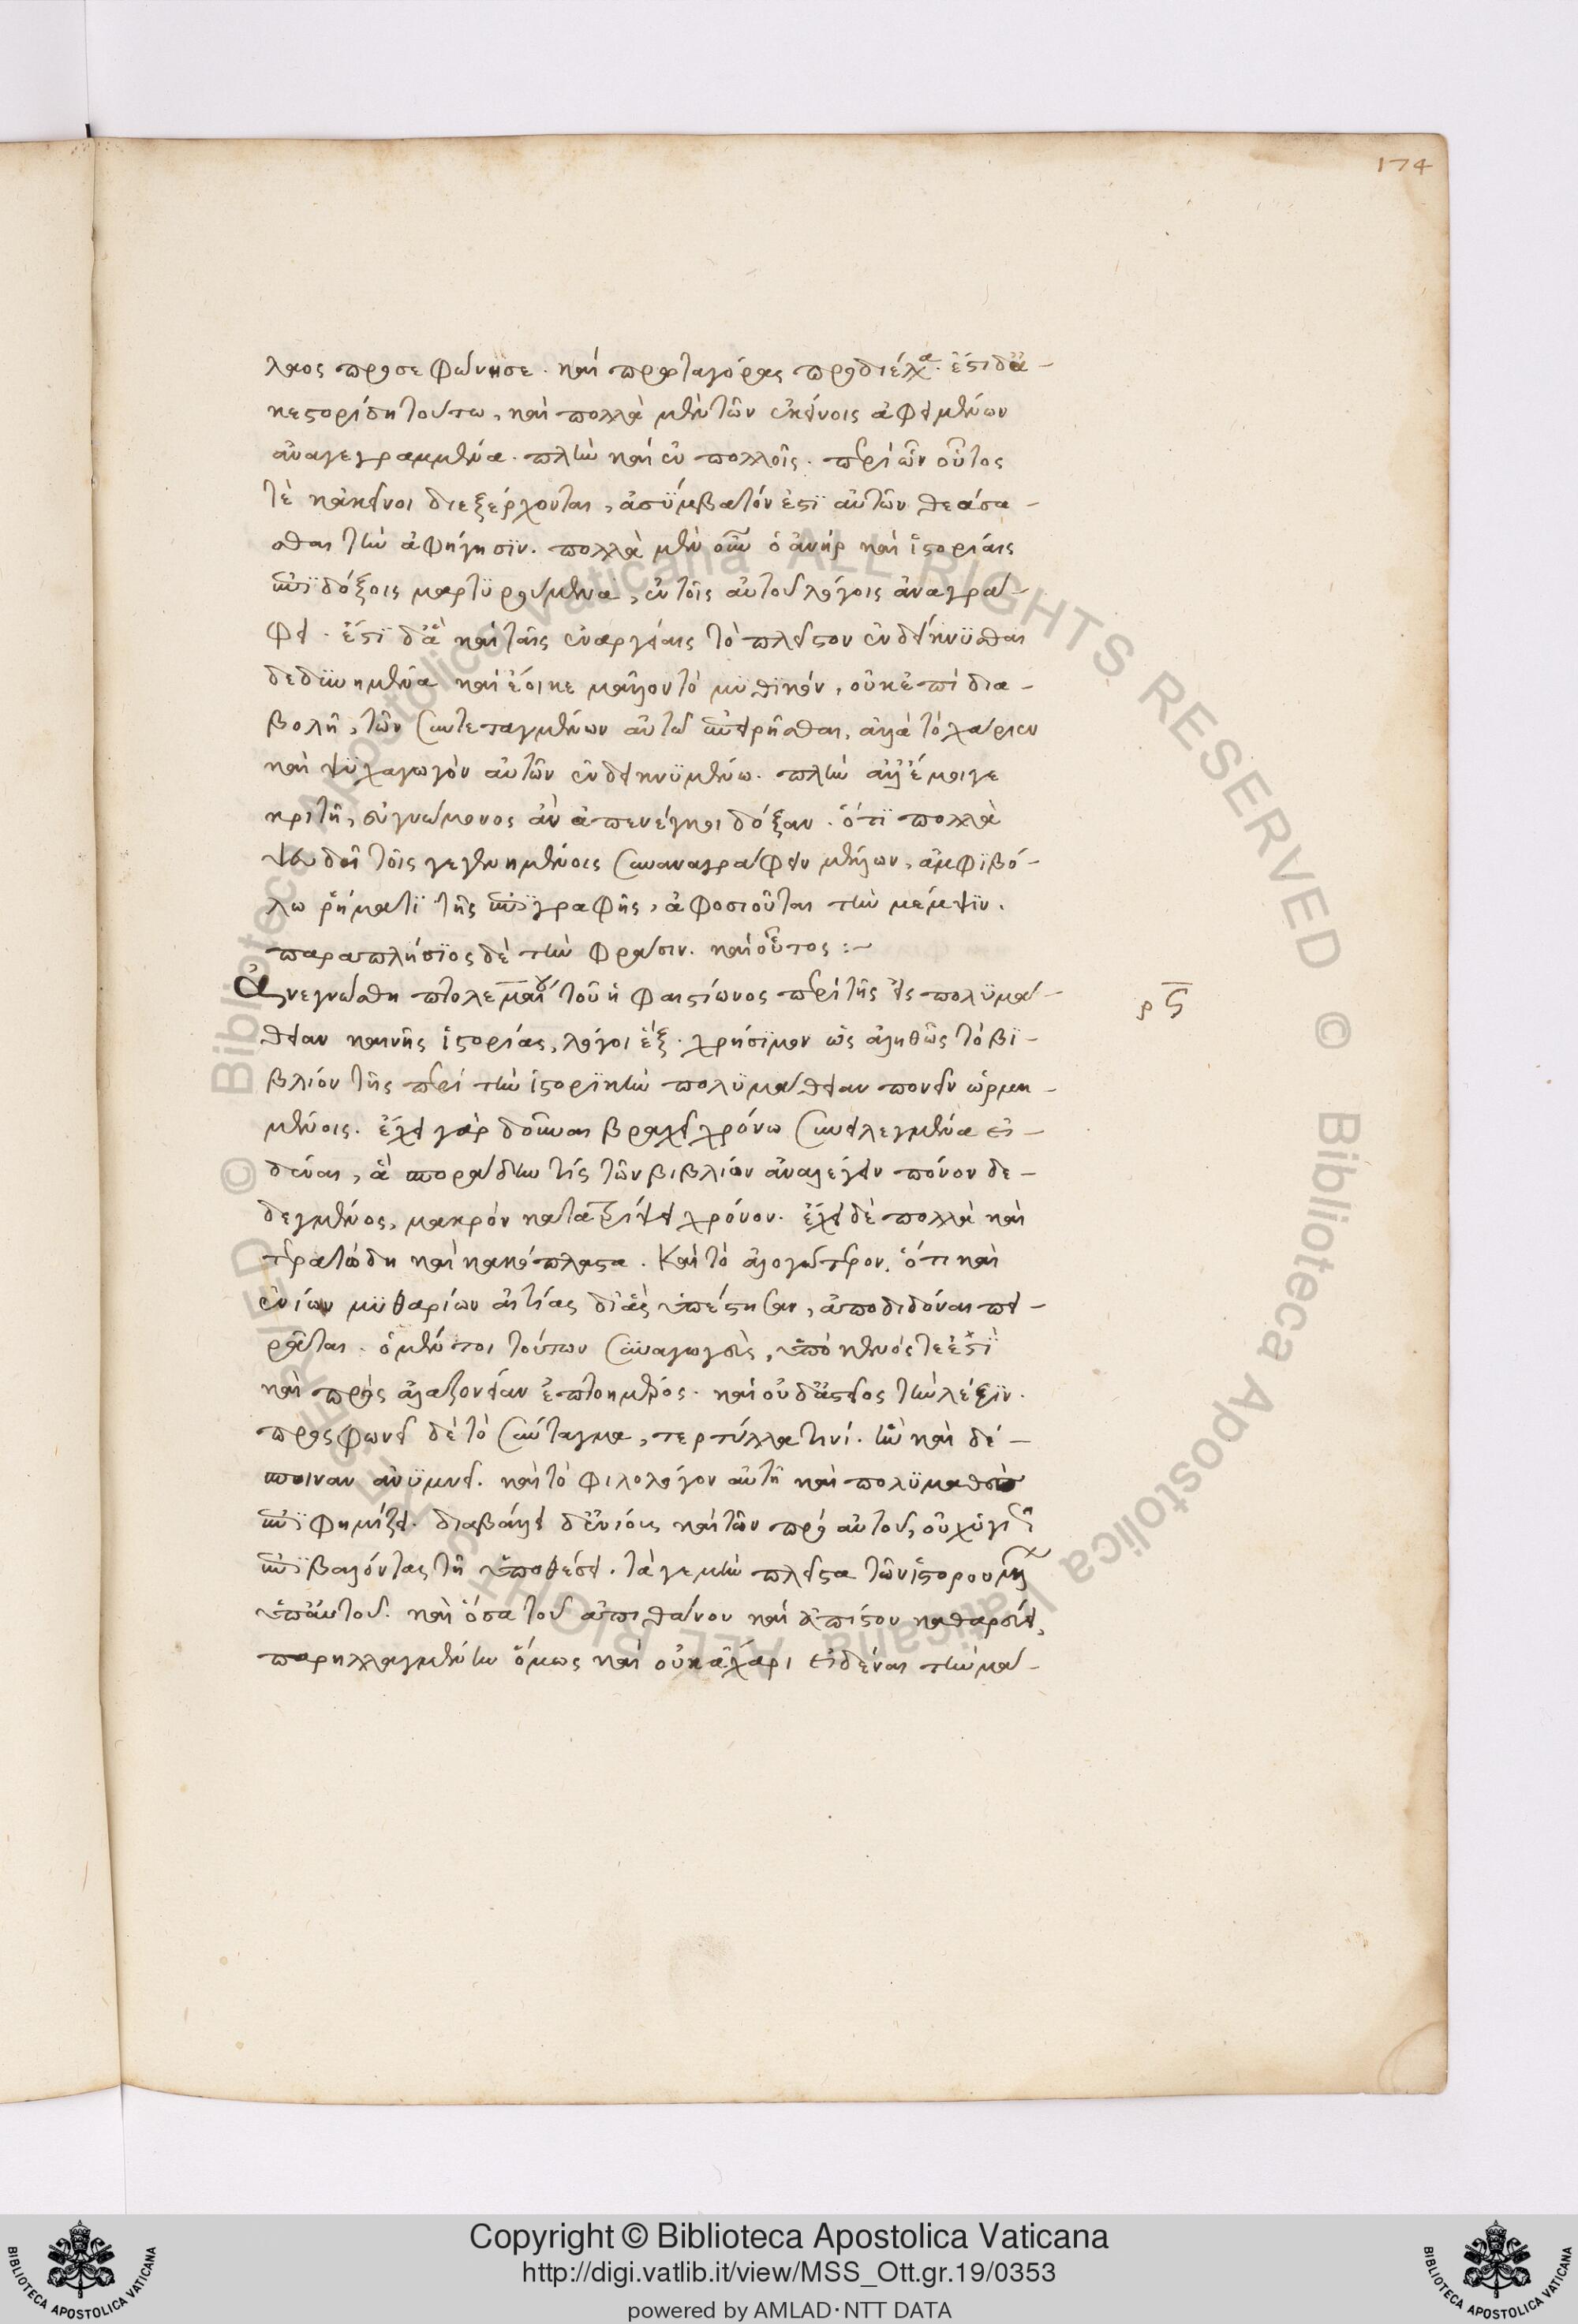 174
λαος προσεφώνησε. καὶ πρωταγόρας προδιέλαβ. ἔστι δὲ
κεστορίδη τούτω, καὶ πολλὰ μὲν τῶν ἐκείνοις ἀφειμένων
ἀναγεγραμμένα. πλὴν καὶ ἐν πολλοῖς. περὶ ὧν οὗτος
τὲ κἀκεῖνοι διεξέρχονται, ἀσύμβατόν ἐστι αὐτῶν θεάσα-
σθαι τὴν ἀφήγησιν. πολλὰ μὲν οὖν ὁ ἀνὴρ καὶ ἱστορίαις
ἐπιδόξοις μαρτυρούμενα, ἐν τοῖς αὐτοῦ λόγοις ἀναγρά-
φει. ἔστι δ' ἃ καὶ ταῖς ἐναργείαις τὸ πλεῖστον ἐνδείκνυσθαι
δεδυνημένα καὶ ἔοικε μᾶλλον τὸ μυθικόν, οὐκ ἐπὶ δια-
βολῆ, τῶν συντεταγμένων αὐτῶ ἐπειρῆσθαι, ἀλλὰ τὸ χάριεν
καὶ ψυχαγωγὸν αὐτῶν ἐνδεικνυμένω. πλὴν ἀλλ' ἔμοιγε
κριτῆ, εὐγνώμονος ἂν ἀπενέγκοι δόξαν. ὅτι πολλὰ
ψευδῆ τοῖς γεγενημένοις συναναγράφειν μέλλων, ἀμφιβό-
λω ῥήματι τῆς ἐπιγραφῆς, ἀφοσιοῦται τὴν μέμψιν.
παραπλήσιος δὲ τὴν φράσιν. καὶ οὗτος :-
Ἀνεγνώσθη πτολεμαίου τοῦ ἡφαιστίωνος περὶ τῆς εἰς πολυμά-
θειαν καινῆς ἱστορίας, λόγοι ἕξ. χρήσιμον ὡς ἀληθῶς τὸ βι-
βλίον τῆς περὶ τὴν ἱστορικὴν πολυμάθειαν πονεῖν ὡρμη-
μένοις. ἔχει γὰρ δοῦναι βραχεῖ χρόνω συνειλεγμένα εἰ-
δέναι, ἃ σποράδην τίς τῶν βιβλίων ἀναλέγειν πόνον δε-
δεγμένος, μακρὸν κατατρίψει χρόνον. ἔχει δὲ πολλὰ καὶ
τερατώδη καὶ κακόπλαστα. Καὶ τὸ ἀλογώτερον, ὅτι καὶ
ἐνίων μυθαρίων αἰτίας δι' ἃς ὑπέστησαν, ἀποδιδόναι πει-
ρᾶται. ὁ μέντοι τούτων συναγωγεὺς, ὑπόκενός τέ ἐστὶ
καὶ πρὸς ἀλαζονείαν ἐπτοημένος. καὶ οὐδ' ἀστεῖος τὴν λέξιν.
προσφωνεῖ δὲ τὸ σύνταγμα, τερτύλλα τινί. ἣν καὶ δέ-
σποιναν ἀνυμνεῖ. καὶ τὸ φιλολόγον αὐτῆ καὶ πολυμαθὲς
ἐπιφημίζει. διαβάλλει δ' ἐνίοις καὶ τῶν πρὸ αὐτοῦ, οὐχ ὑγιῶς
ἐπιβαλόντας τῆ ὑποθέσει. τά γε μὴν πλεῖστα τῶν ἱστορουμένων
ὑπ' αὐτοῦ. καὶ ὅσα τοῦ ἀπιθάνου καὶ ἀπίστου καθαρεύει,
παρηλλαγμένην ὅμως καὶ οὐκ ἄχαρι εἰδέναι τὴν μά-
ρϟ
Copyright © Biblioteca Apostolica Vaticana
http://digi.vatlib.it/view/MSS_Ott.gr.19/0353
powered by AMLAD·NTT DATA